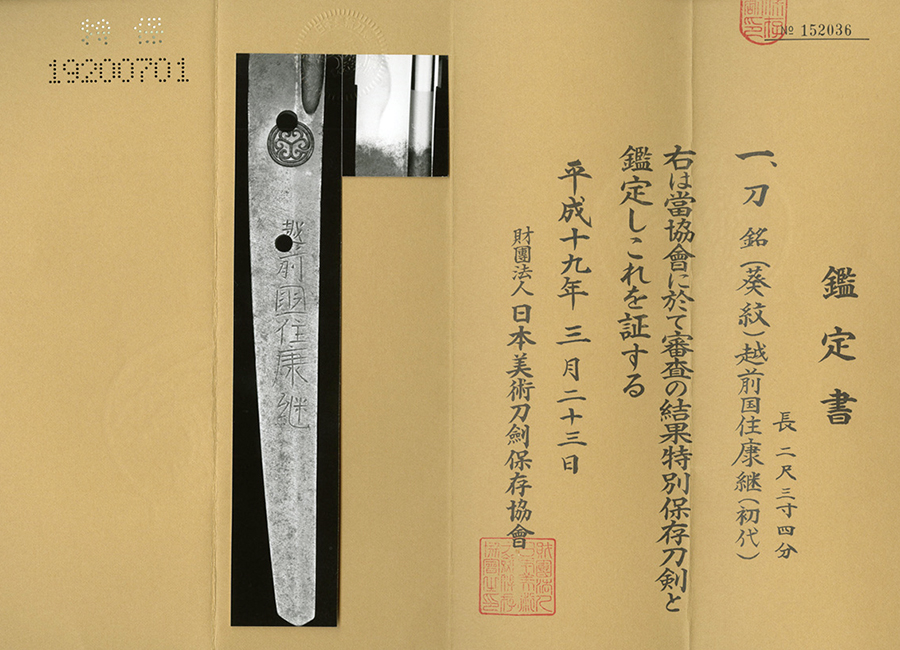 鑑定書
一、刀 銘(葵紋)越前国住康継(初代)
長二尺三寸四分
右は當協會に於て審査の結果特別保存刀剣と
鑑定しこれを証する
平成十九年三月二十三日
財團法人日本美術刀劍保存協會
№ 152036
越前國住康継
19200701